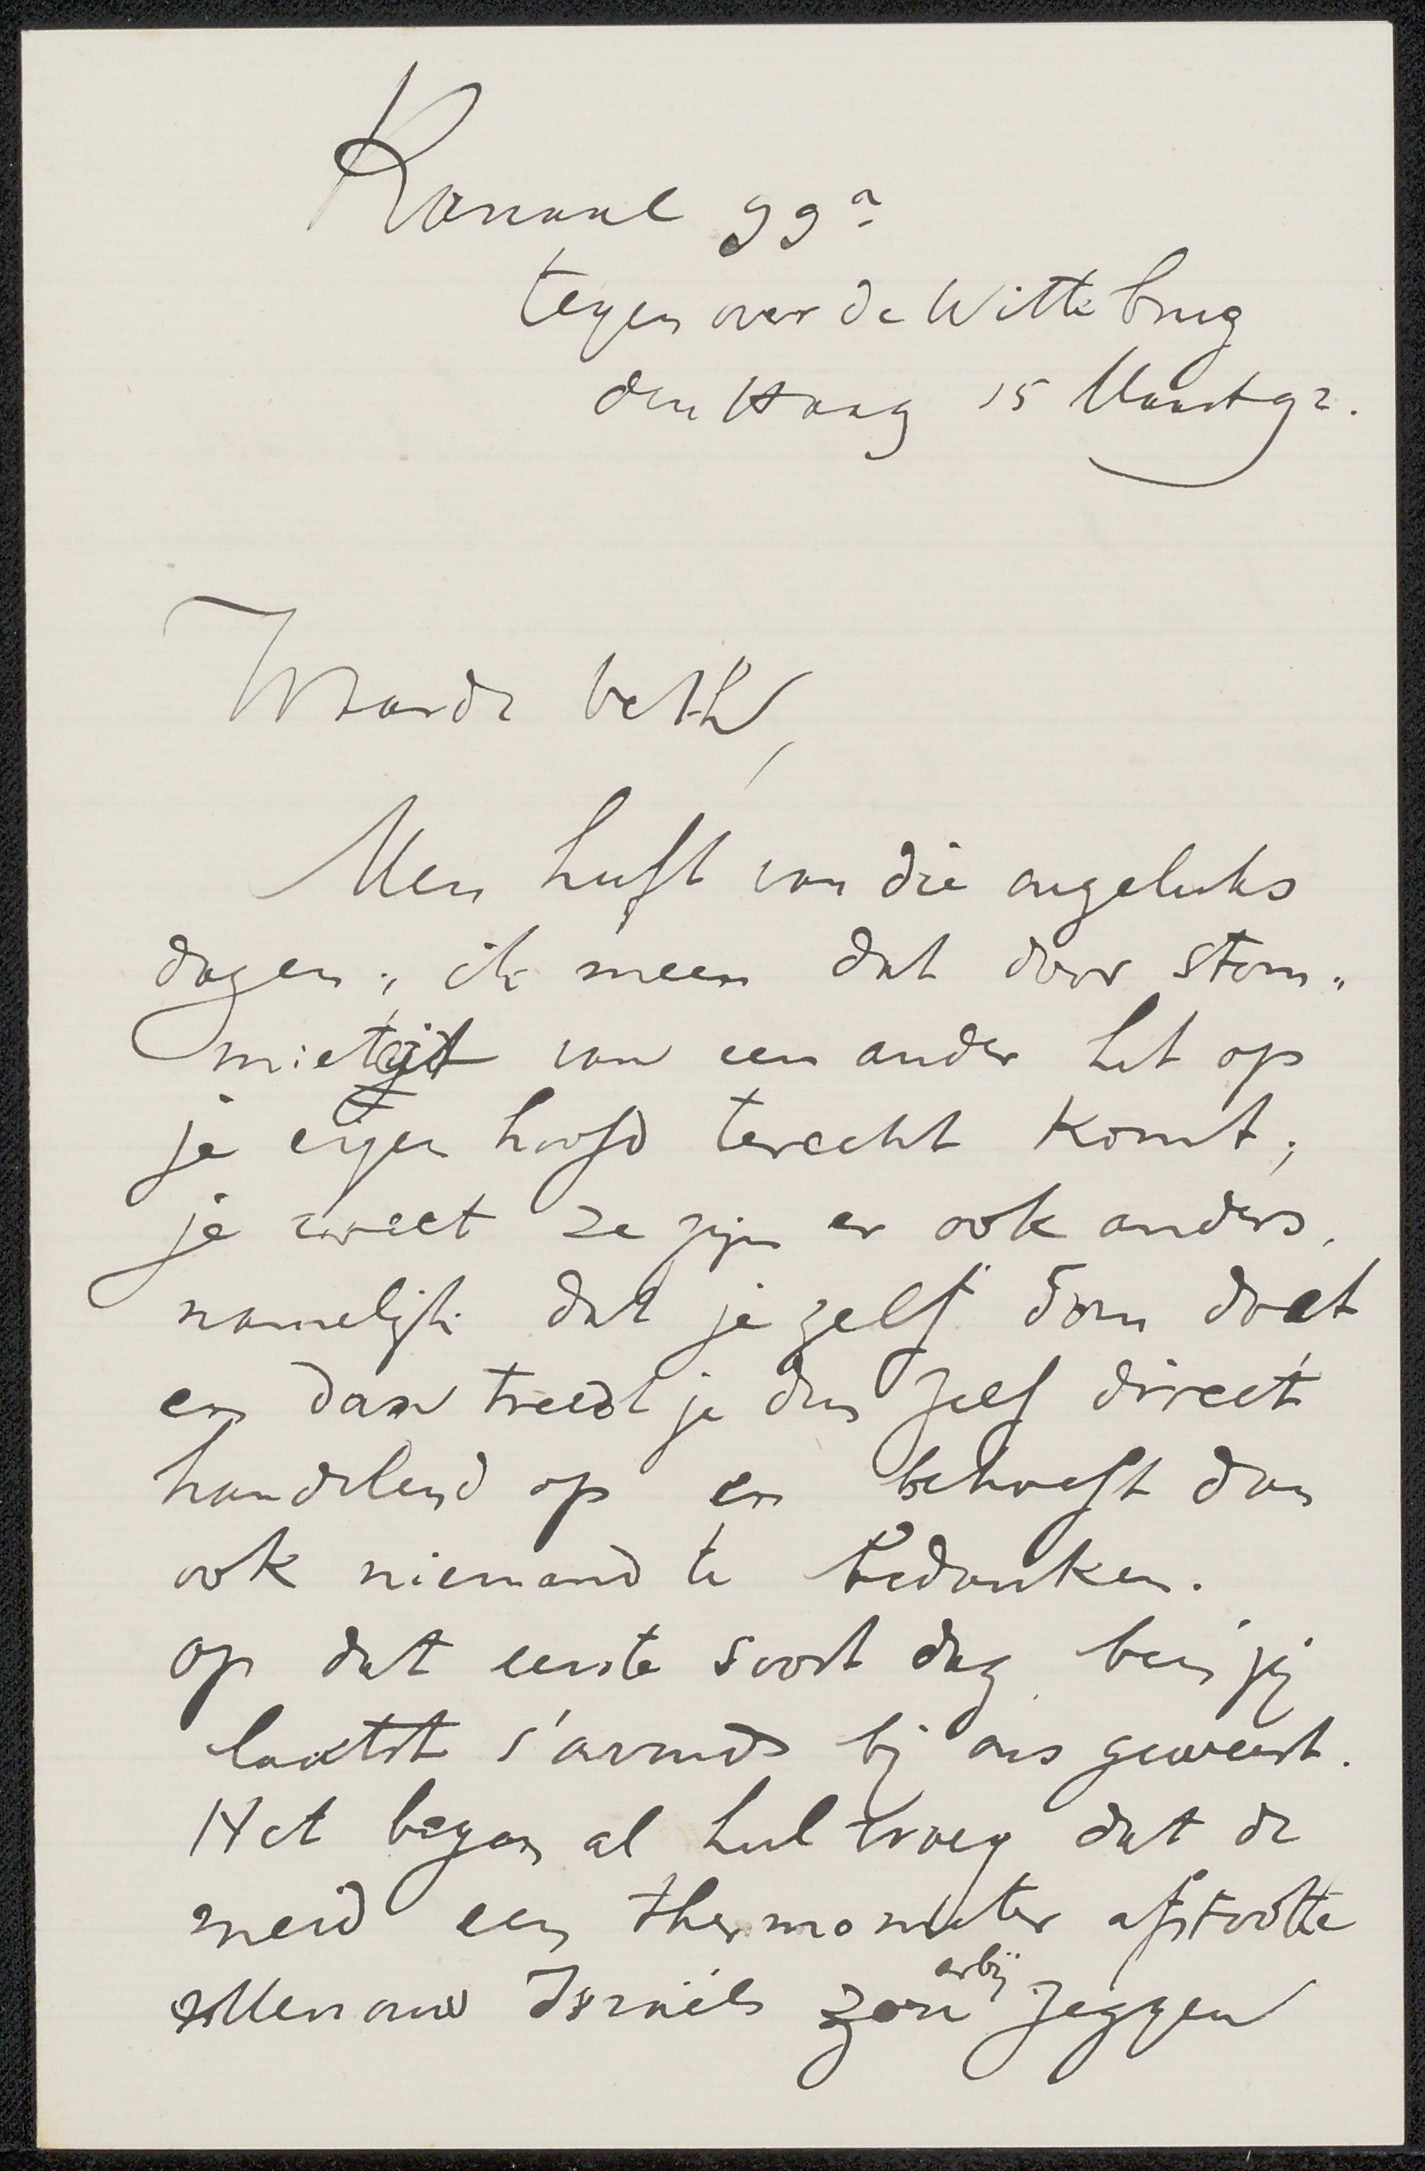 Kanaal 99a
tegen over de Witte brug
den Haag 15 Maart 92.
Waarde beth,
Men heeft van die ongeluks
dagen, ik meen dat door stom„
miet van een ander het op
je eigen hoofd terecht komt;
je weet ze zijn er ook anders,
namelijk dat je zelf dom doet
en dan treedt je dus zelf direct
handelend op en behoeft dan
ook niemand te bedanken.
op dat eerste soort dag ben jij
laatst s'avonds bij ons geweest.
Het begon al heel vroeg dat de
meid een thermometer afstootte
Mevrouw Israëls zou erbij zeggen